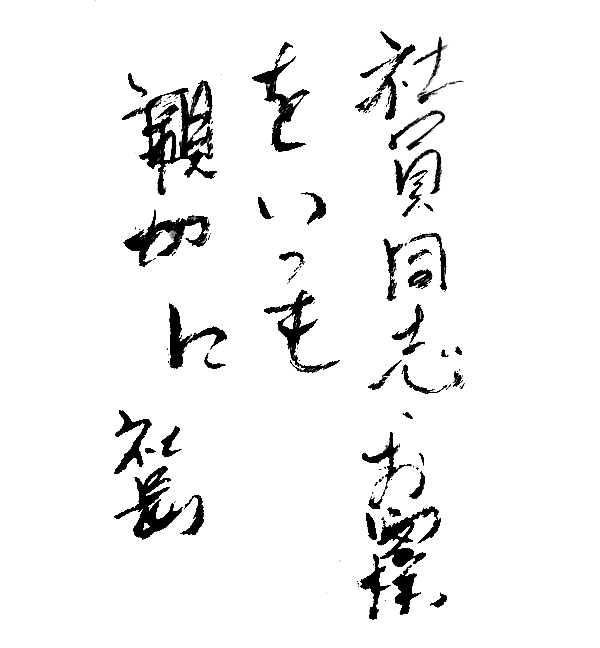 社員同志、お客様
をいつも
親切に